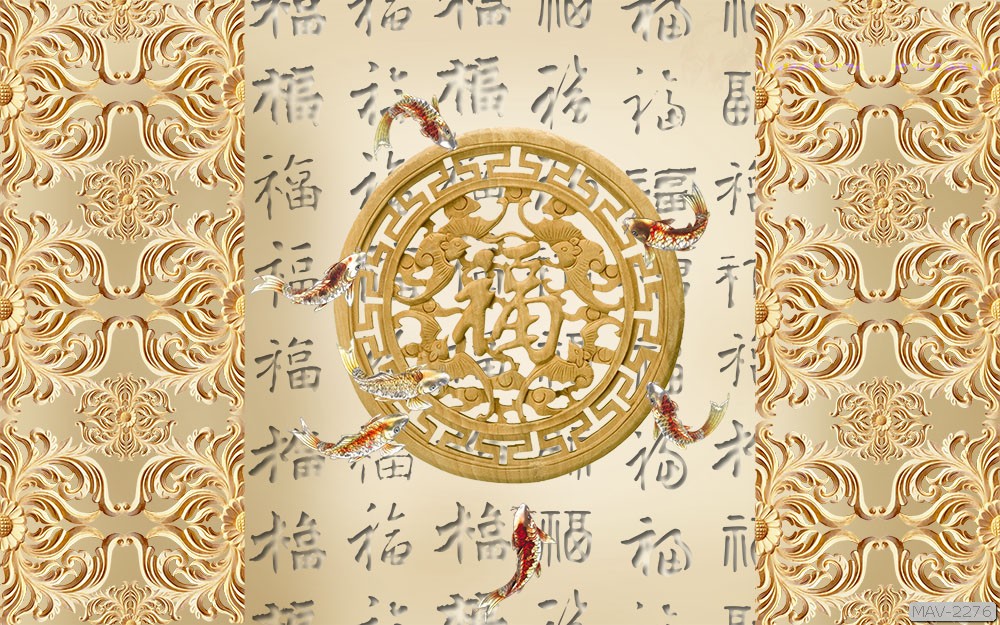 福 福 福 福 福
福 福 福 福 福 福
福 福 福 福
福 福
福
福
福 福 福 福
福 福 福 福 福
福 福 福 福 福
MAV-2276